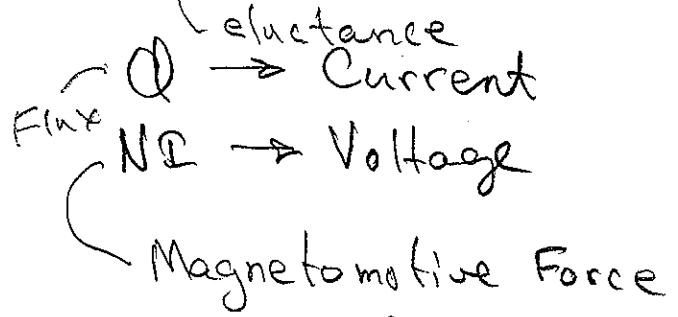 eluctance
Φ → Current
Flux
NI → Voltage
Magnetomotive Force